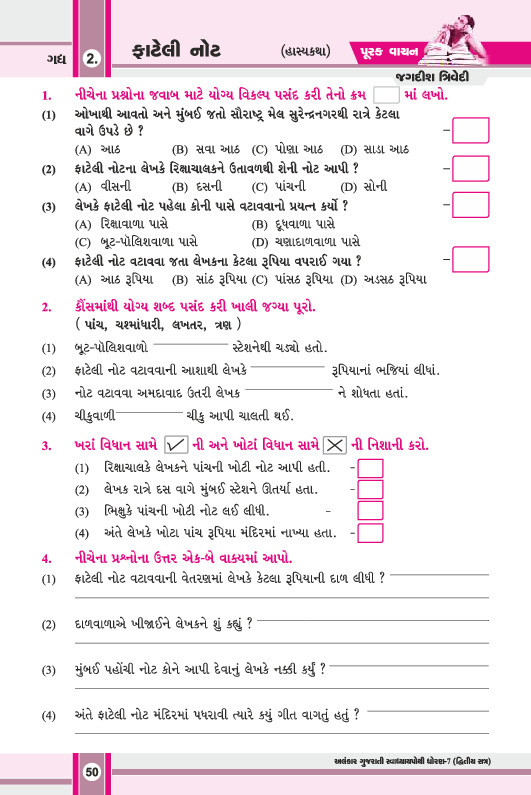 ગદ્ય 2. ફાટેલી નોટ (હાસ્યકથા) પૂરક વાચન
જગદીશ ત્રિવેદી
1. નીચેના પ્રશ્નોના જવાબ માટે યોગ્ય વિકલ્પ પસંદ કરી તેનો ક્રમ માં લખો.
(1) ઓખાથી આવતો અને મુંબઈ જતો સૌરાષ્ટ્ર મેલ સુરેન્દ્રનગરથી રાત્રે કેટલા
વાગે ઉપડે છે ? –
(A) આઠ (B) સવા આઠ (C) પોણા આઠ (D) સાડા આઠ
(2) ફાટેલી નોટના લેખકે રિક્ષાચાલકને ઉતાવળથી શેની નોટ આપી ? –
(A) વીસની (B) દસની (C) પાંચની (D) સોની
(3) લેખકે ફાટેલી નોટ પહેલા કોની પાસે વટાવવાનો પ્રયત્ન કર્યો ? –
(A) રિક્ષાવાળા પાસે (B) દૂધવાળા પાસે
(C) બૂટ-પૉલિશવાળા પાસે (D) ચણાદાળવાળા પાસે
(4) ફાટેલી નોટ વટાવવા જતા લેખકના કેટલા રૂપિયા વપરાઈ ગયા ? –
(A) આઠ રૂપિયા (B) સાંઠ રૂપિયા (C) પાંસઠ રૂપિયા (D) અડસઠ રૂપિયા
2. કૌંસમાંથી યોગ્ય શબ્દ પસંદ કરી ખાલી જગ્યા પૂરો.
( પાંચ, ચશ્માંધારી, લખતર, ત્રણ )
(1) બૂટ-પૉલિશવાળો ____________ સ્ટેશનેથી ચડ્યો હતો.
(2) ફાટેલી નોટ વટાવવાની આશાથી લેખકે ____________ રૂપિયાનાં ભજિયાં લીધાં.
(3) નોટ વટાવવા અમદાવાદ ઉતરી લેખક ____________ ને શોધતા હતાં.
(4) ચીકુવાળી ____________ ચીકુ આપી ચાલતી થઈ.
3. ખરાં વિધાન સામે ✓ ની અને ખોટાં વિધાન સામે ✗ ની નિશાની કરો.
(1) રિક્ષાચાલકે લેખકને પાંચની ખોટી નોટ આપી હતી. –
(2) લેખક રાત્રે દસ વાગે મુંબઈ સ્ટેશને ઊતર્યા હતા. –
(3) ભિક્ષુકે પાંચની ખોટી નોટ લઈ લીધી. –
(4) અંતે લેખકે ખોટા પાંચ રૂપિયા મંદિરમાં નાખ્યા હતા. –
4. નીચેના પ્રશ્નોના ઉત્તર એક-બે વાક્યમાં આપો.
(1) ફાટેલી નોટ વટાવવાની વેતરણમાં લેખકે કેટલા રૂપિયાની દાળ લીધી ?
(2) દાળવાળાએ ખીજાઈને લેખકને શું કહ્યું ?
(3) મુંબઈ પહોંચી નોટ કોને આપી દેવાનું લેખકે નક્કી કર્યું ?
(4) અંતે ફાટેલી નોટ મંદિરમાં પધરાવી ત્યારે કયું ગીત વાગતું હતું ?
અલંકાર ગુજરાતી સ્વાધ્યાયપોથી ધોરણ-7 (દ્વિતીય સત્ર)
50